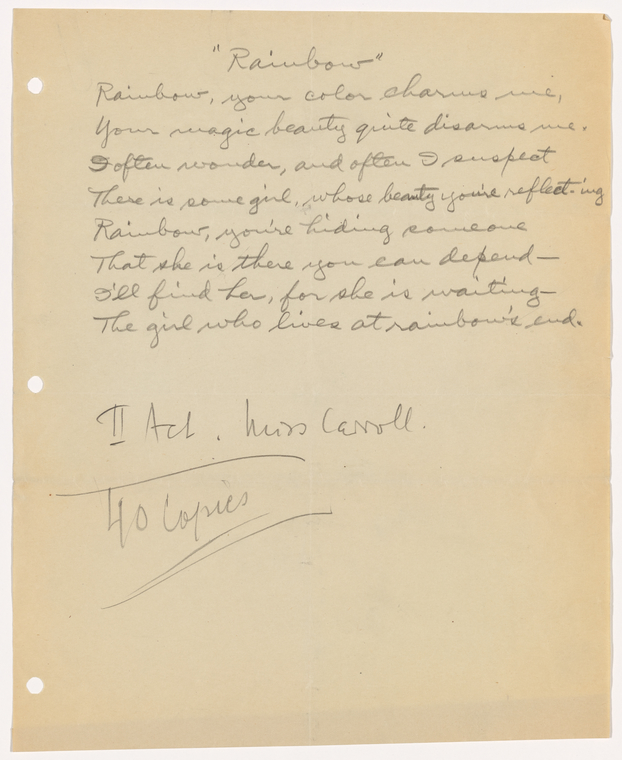 "Rainbow"
Rainbow, your color charms me,
Your magic beauty quite disarms me.
I often wonder, and often I suspect
There is some girl, whose beauty you're reflect-ing
Rainbow, you're hiding someone
That she is there you can depend—
I'll find her, for she is waiting—
The girl who lives at rainbow's end.
II Act. Miss Carroll.
40 Copies